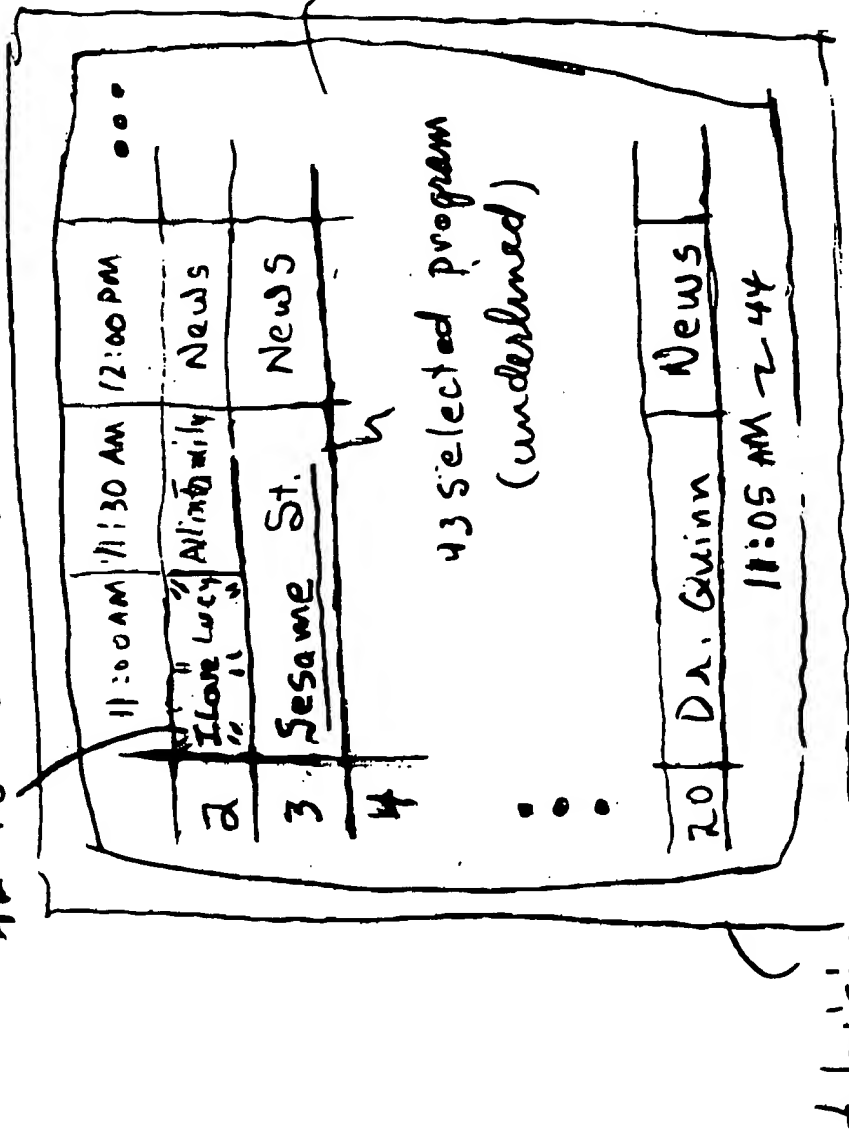 11:00 AM 11:30 AM 12:00 PM
2 "I Love Lucy" All in Family News
3 Sesame St. News
4
43 selected program
(underlined)
20 Dr. Quinn News
11:05 AM 44